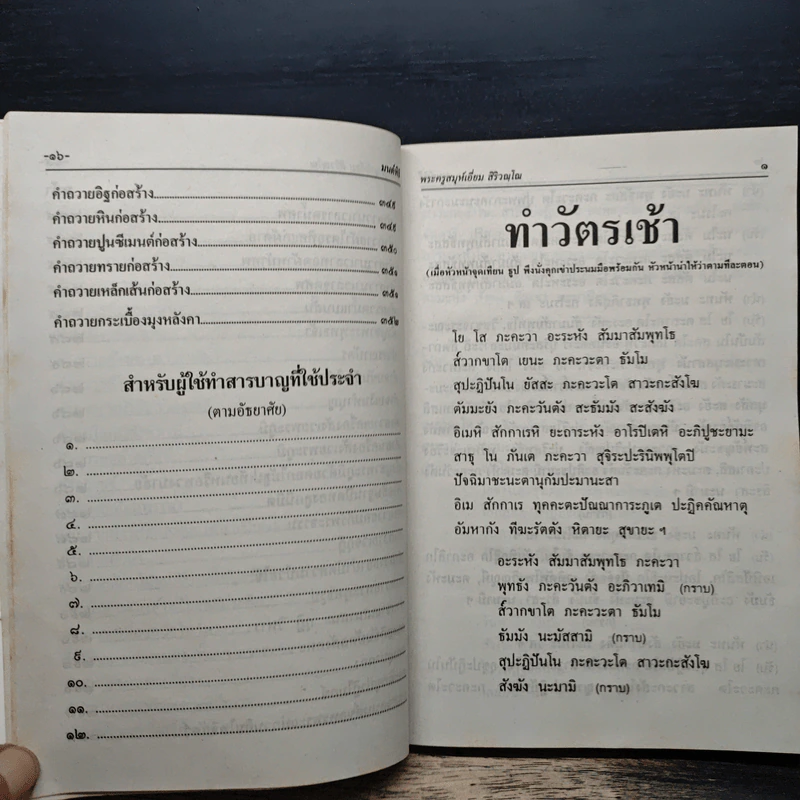 -๑๖-
มนต์พิธี
คำถวายอิฐก่อสร้าง............................๓๔๙
คำถวายหินก่อสร้าง............................๓๔๙
คำถวายปูนซีเมนต์ก่อสร้าง............................๓๕๐
คำถวายทรายก่อสร้าง............................๓๕๑
คำถวายเหล็กเส้นก่อสร้าง............................๓๕๑
คำถวายกระเบื้องมุงหลังคา............................๓๕๒
สำหรับผู้ใช้ทำสารบาญที่ใช้ประจำ
(ตามอัธยาศัย)
๑. ............................
๒. ............................
๓. ............................
๔. ............................
๕. ............................
๖. ............................
๗. ............................
๘. ............................
๙. ............................
๑๐. ............................
๑๑. ............................
๑๒. ............................
พระครูสมุห์เอี่ยม สิริวณฺโณ
๑
ทำวัตรเช้า
(เมื่อหัวหน้าจุดเทียน ธูป พึงนั่งคุกเข่าประนมมือพร้อมกัน หัวหน้านำให้ว่าตามทีละตอน)
โย โส ภะคะวา อะระหัง สัมมาสัมพุทโธ
ส๎วากขาโต เยนะ ภะคะวะตา ธัมโม
สุปะฏิปันโน ยัสสะ ภะคะวะโต สาวะกะสังโฆ
ตัมมะยัง ภะคะวันตัง สะธัมมัง สะสังฆัง
อิเมหิ สักกาเรหิ ยะถาระหัง อาโรปิเตหิ อะภิปูชะยามะ
สาธุ โน ภันเต ภะคะวา สุจิระปะรินิพพุโตปิ
ปัจฉิมาชะนะตานุกัมปะมานะสา
อิเม สักกาเร ทุคคะตะปัณณาการะภูเต ปะฏิคคัณหาตุ
อัมหากัง ทีฆะรัตตัง หิตายะ สุขายะ ฯ
อะระหัง สัมมาสัมพุทโธ ภะคะวา
พุทธัง ภะคะวันตัง อะภิวาเทมิ (กราบ)
ส๎วากขาโต ภะคะวะตา ธัมโม
ธัมมัง นะมัสสามิ (กราบ)
สุปะฏิปันโน ภะคะวะโต สาวะกะสังโฆ
สังฆัง นะมามิ (กราบ)